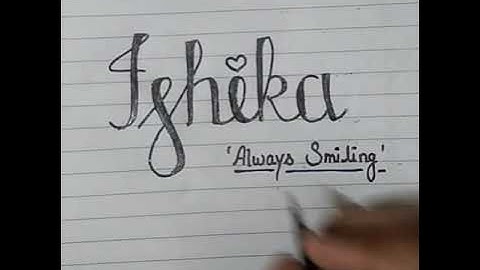 Ishika
'Always Smiling'